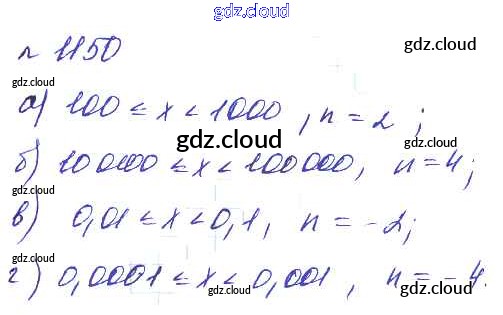 gdz.cloud
n 1150
gdz.cloud
gdz.cloud
gdz.cloud
а) 100 ≤ x < 1000, n = 2;
gdz.cloud
б) 10 000 ≤ x < 100 000, n = 4;
gdz.cloud
gdz.cloud
в) 0,01 ≤ x < 0,1, n = -2;
г) 0,0001 ≤ x < 0,001, n = -4.
gdz.cloud
gdz.cloud
gdz.cloud